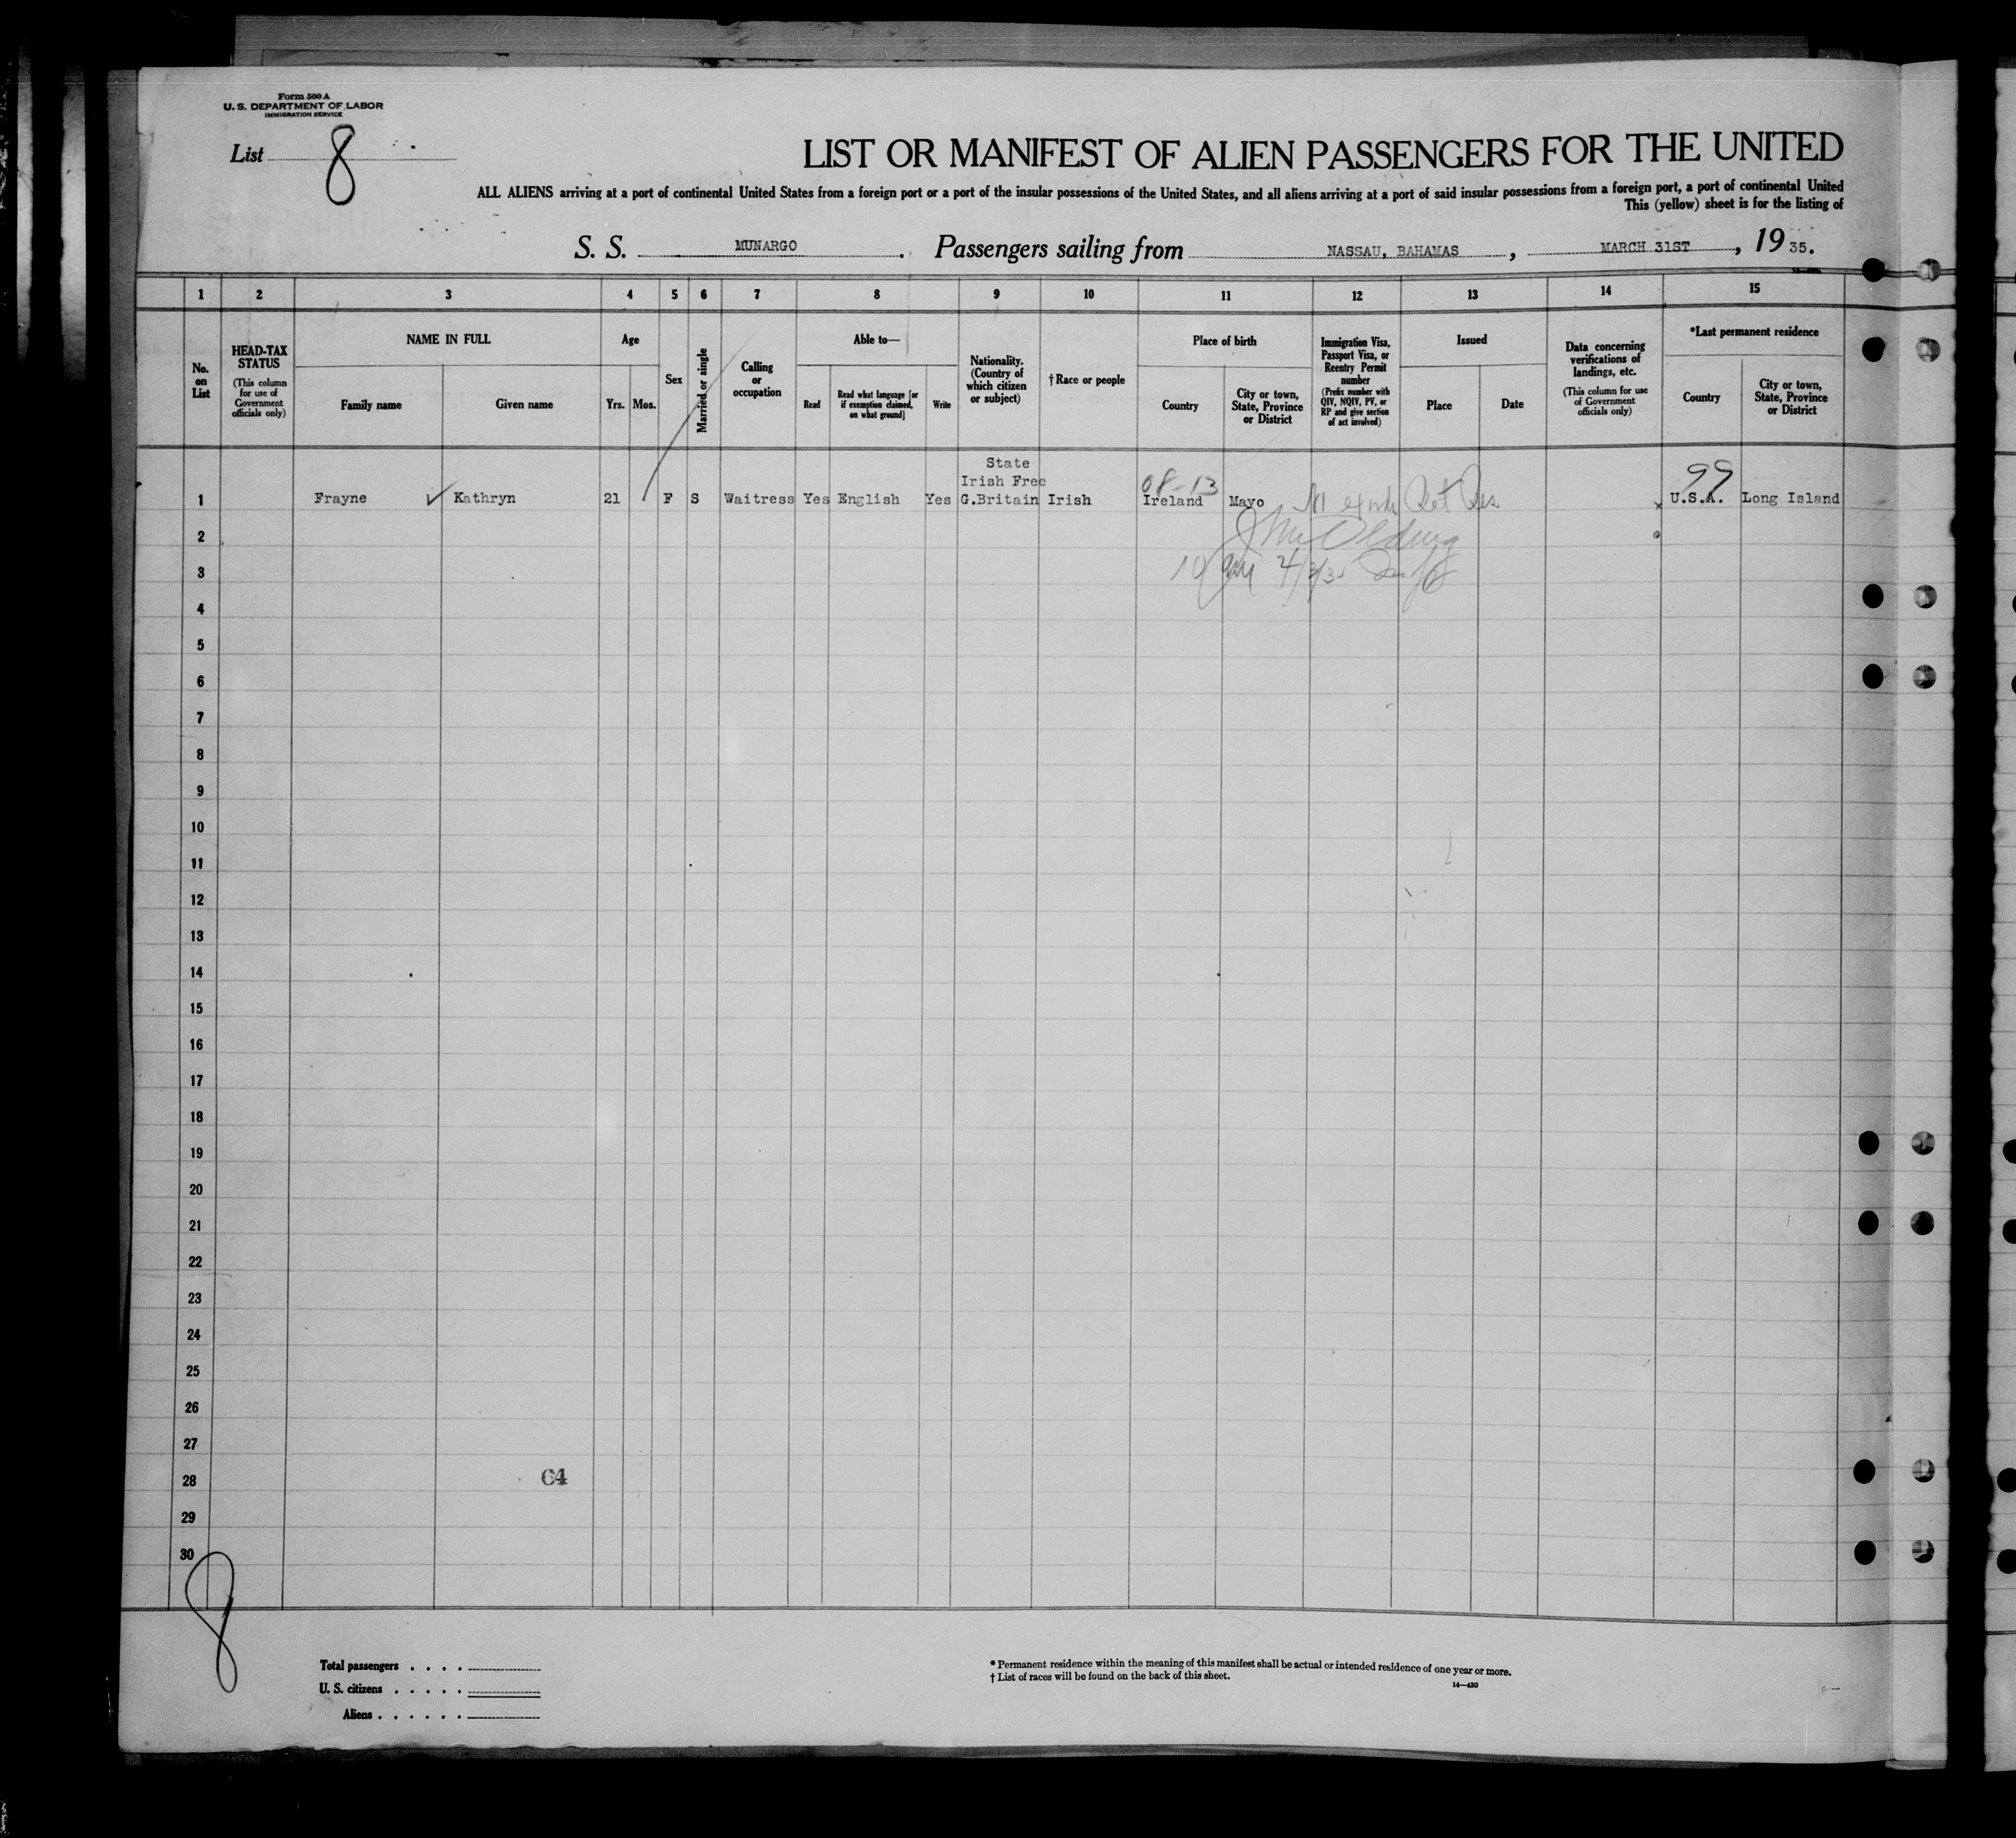 Form 500 A
U. S. DEPARTMENT OF LABOR
IMMIGRATION SERVICE
List 8
LIST OR MANIFEST OF ALIEN PASSENGERS FOR THE UNITED
ALL ALIENS arriving at a port of continental United States from a foreign port or a port of the insular possessions of the United States, and all aliens arriving at a port of said insular possessions from a foreign port, a port of continental United
This (yellow) sheet is for the listing of
S. S. MUNARGO. Passengers sailing from NASSAU, BAHAMAS, MARCH 31ST, 1935.
1 2 3 4 5 6 7 8 9 10 11 12 13 14 15
No. on List
HEAD-TAX STATUS
(This column for use of Government officials only)
NAME IN FULL
Family name
Given name
Age
Yrs. Mos.
Sex
Married or single
Calling or occupation
Able to—
Read
Read what language [or if exemption claimed, on what ground]
Write
Nationality. (Country of which citizen or subject)
†Race or people
Place of birth
Country
City or town, State, Province or District
Immigration Visa, Passport Visa, or Reentry Permit number
(Prefix number with QIV, NQIV, PV, or RP and give section of act involved)
Issued
Place
Date
Data concerning verifications of landings, etc.
(This column for use of Government officials only)
*Last permanent residence
Country
City or town, State, Province or District
State
Irish Free
08-13
99
1 Frayne ✓ Kathryn 21 F S Waitress Yes English Yes G.Britain Irish Ireland Mayo x U.S.A. Long Island
2
3
4
5
6
7
8
9
10
11
12
13
14
15
16
17
18
19
20
21
22
23
24
25
26
27
28 C4
29
30
8
Total passengers . . . .
U. S. citizens . . . . .
Aliens . . . . . .
* Permanent residence within the meaning of this manifest shall be actual or intended residence of one year or more.
† List of races will be found on the back of this sheet.
14—430